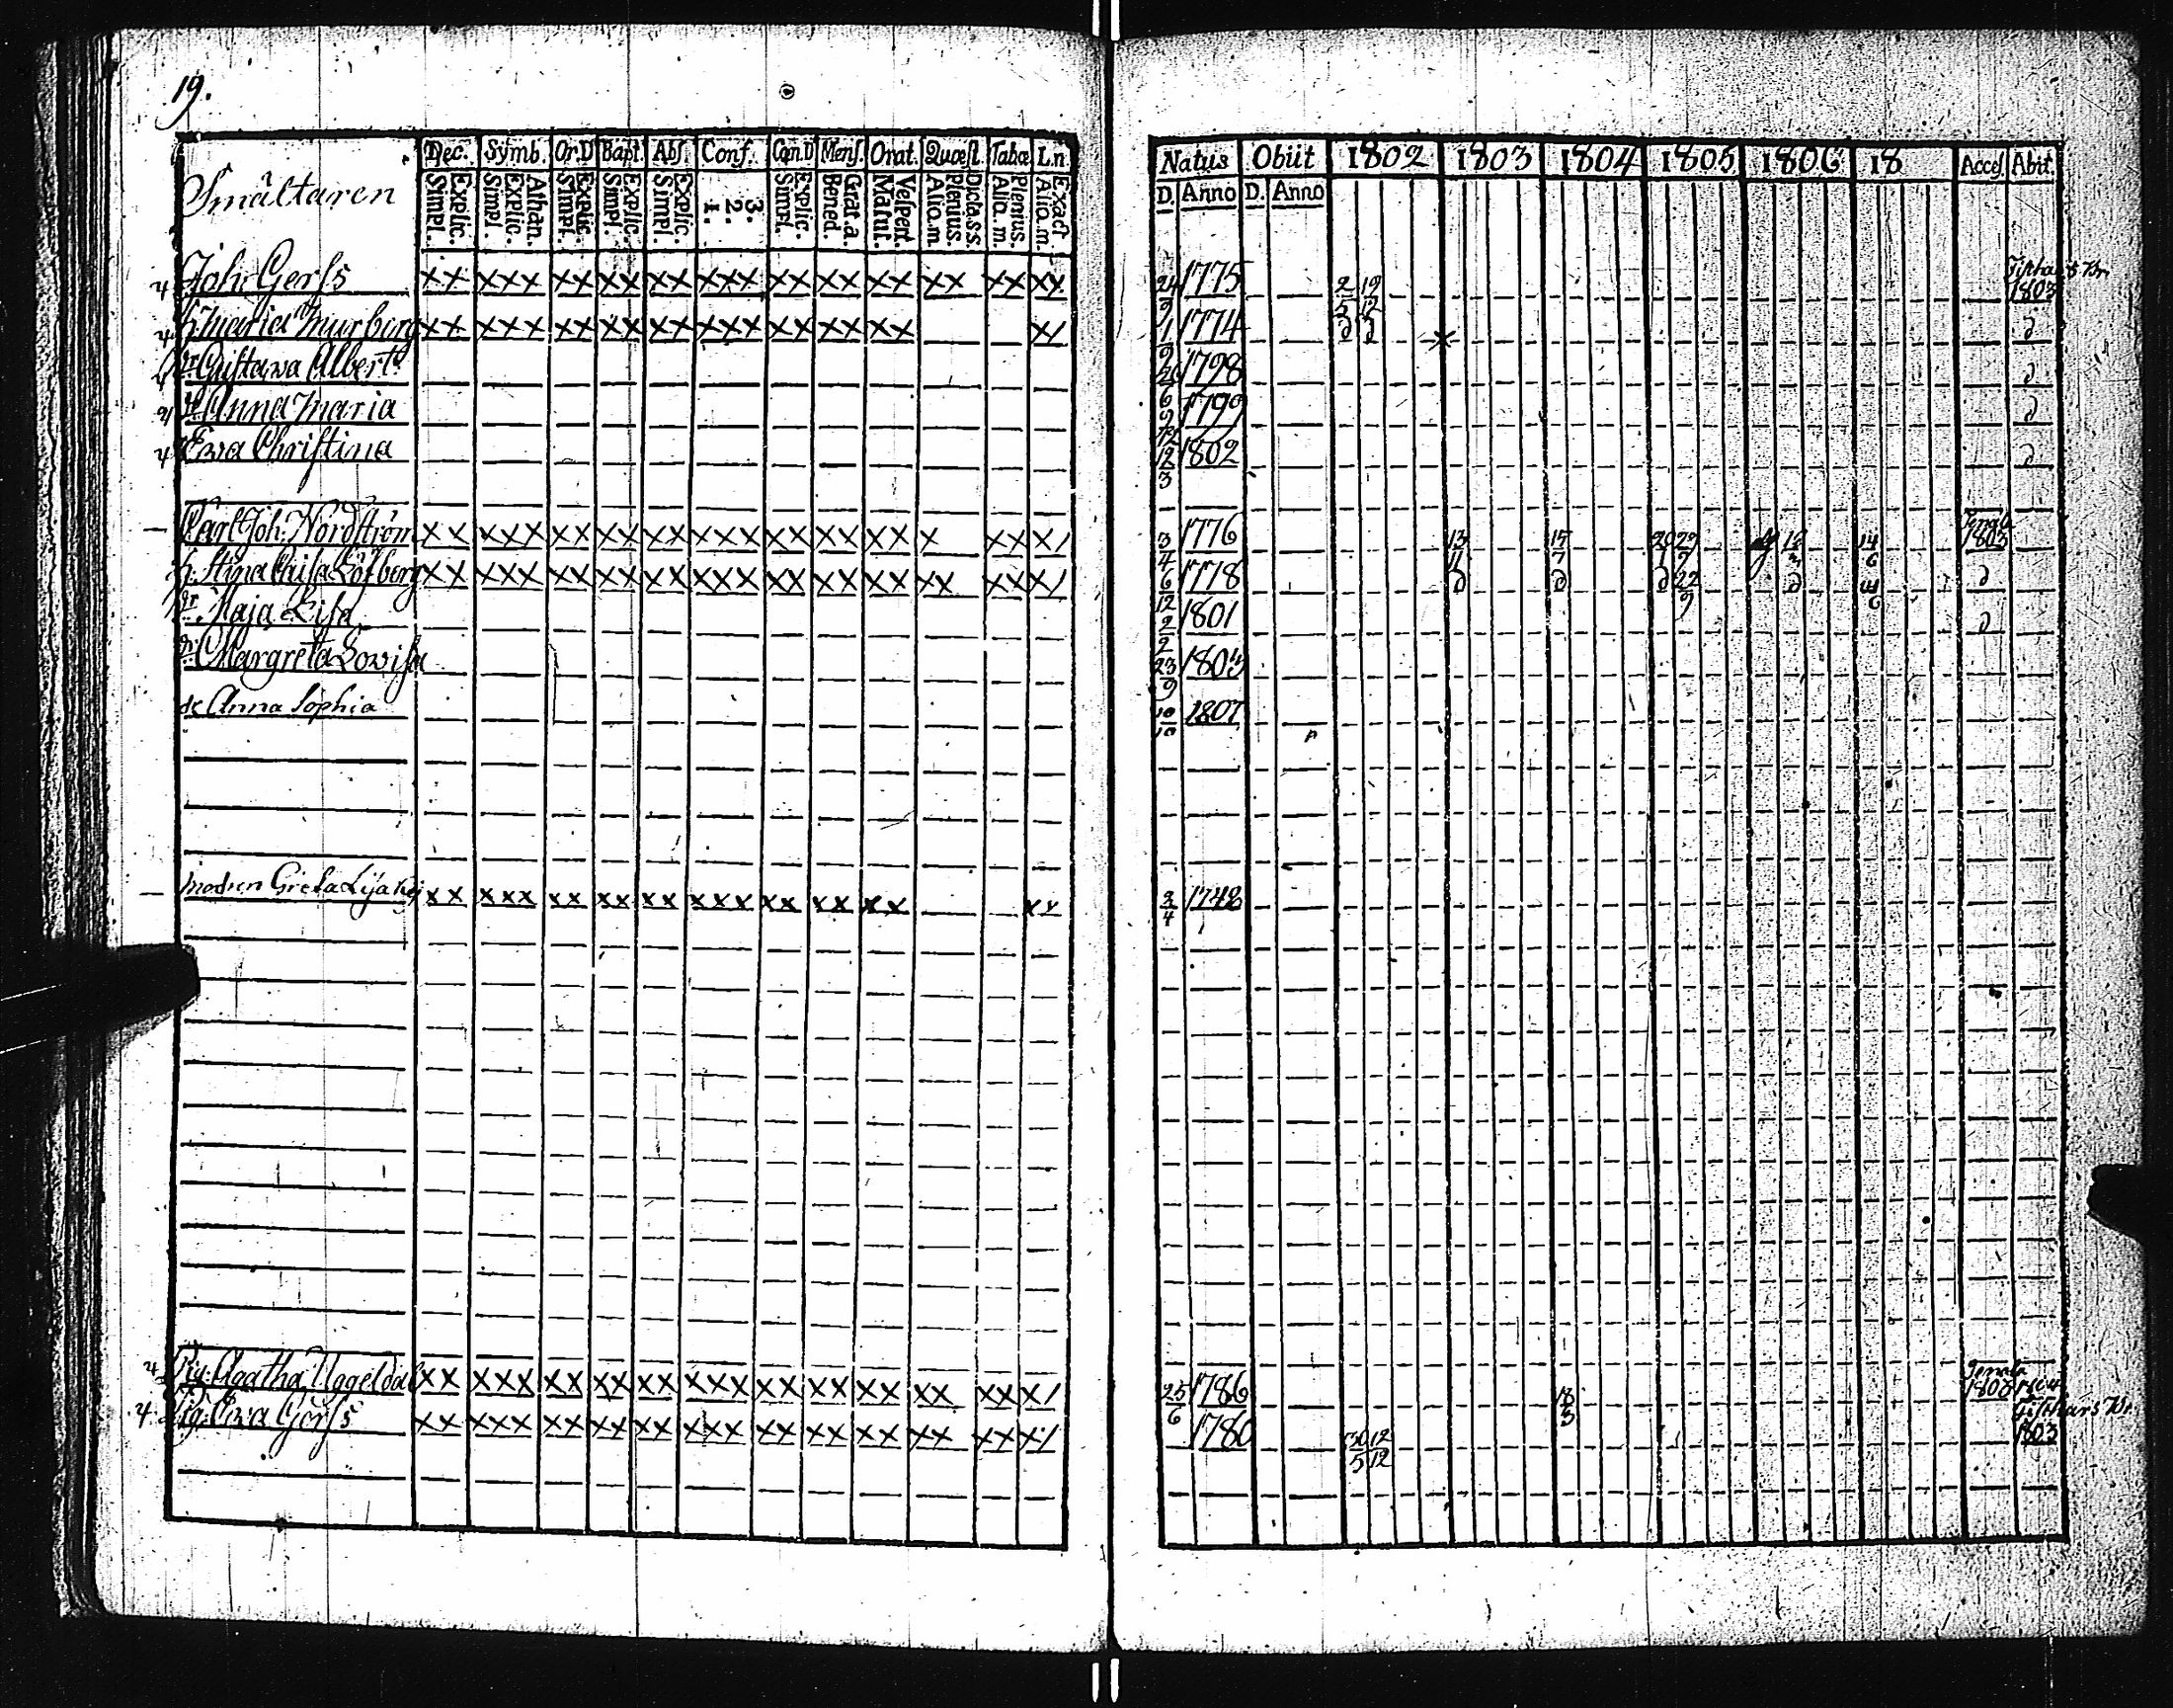 19.
Smältaren
Dec. Symb. Or.D Bapt. Abs. Conf. Cœn.D Mens. Orat. Quæst. Tabæ L.n.
Explic. Simpl. Athan. Explic. Simpl. Explic. Simpl. Explic. Simpl. Explic. Simpl. 3. 2. 1. Explic. Simpl. Grat.a. Bened. Vespert. Matut. Dicta.s.s. Plenius. Aliq.m. Plenius. Aliq.m. Exact Aliq.m.
Natus Obiit 1802 1803 1804 1805 1806 18 Acces. Abit.
D. Anno D. Anno
Joh. Gerss xx xxx xx xx xx xxx xx xx xx xx xx xx 24/9 1775 2/5 19/12 1803
h. Maria Murburg xx xxx xx xx xx xxx xx xx xx x/ 1/9 1774 d d x d
dr Gustawa Albert. 1798 d
dr Anna Maria 9/12 1799 d
Ewa Christina 12/3 1802 d
Carl Joh. Nordström xx xxx xx xx xx xxx xx xx xx x xx x/ 3/4 1776 13/11 15/7 14/6 1803
h. Stina Caisa Löfberg xx xxx xx xx xx xxx xx xx xx xx xx x/ 6/12 1778 d d d 22/9 d d
dr Maja Lisa 2/2 1801 d
dr Margreta Lovisa 23/9 1805
dr Anna Sophia 10/10 1807
modren Greta Lisa xx xxx xx xx xx xxx xx xx xx xx 3/4 1748
Pig. Agatha Uggeldal xx xxx xx xx xx xxx xx xx xx xx xx x/ 25/6 1786 18/3
Pig. Ewa Gerss xx xxx xx xx xx xxx xx xx xx xx xx x/ 1780 30/5 12/12 1803